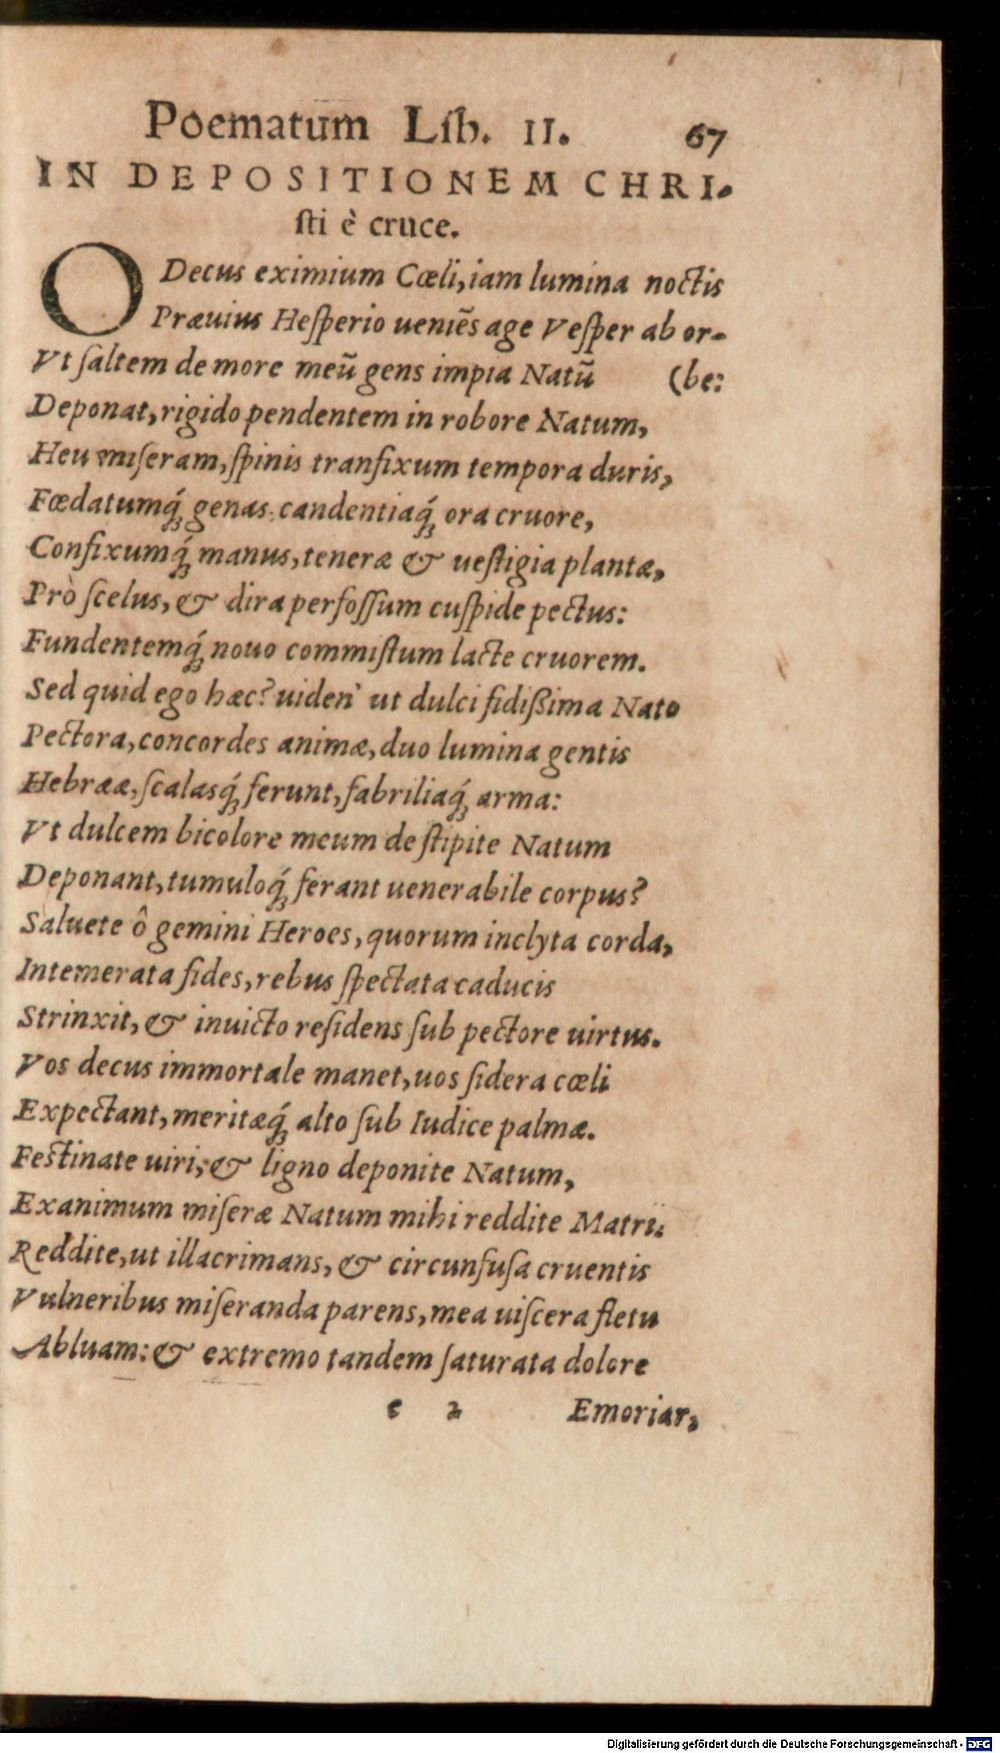 Poematum Lib. II. 67
IN DEPOSITIONEM CHRI-
sti è cruce.
O Decus eximium Cœli, iam lumina noctis
Præuius Hesperio ueniẽs age Vesper ab or-
Vt saltem de more meũ gens impia Natũ (be:
Deponat, rigido pendentem in robore Natum,
Heu miseram, spinis transixum tempora duris,
Fœdatumq́; genas candentiaq́; ora cruore,
Confixumq́; manus, teneræ & uestigia plantæ,
Prò scelus, & dira perfossum cuspide pectus:
Fundentemq́; nouo commistum lacte cruorem.
Sed quid ego hæc? uiden' ut dulci fidißima Nato
Pectora, concordes animæ, duo lumina gentis
Hebrææ, scalasq́; ferunt, fabriliaq́; arma:
Vt dulcem bicolore meum de stipite Natum
Deponant, tumuloq́; ferant uenerabile corpus?
Saluete ô gemini Heroes, quorum inclyta corda,
Intemerata fides, rebus spectata caducis
Strinxit, & inuicto residens sub pectore uirtus.
Vos decus immortale manet, uos sidera cœli
Expectant, meritæq́; alto sub Iudice palmæ.
Festinate uiri, & ligno deponite Natum,
Exanimum miseræ Natum mihi reddite Matri:
Reddite, ut illacrimans, & circunfusa cruentis
Vulneribus miseranda parens, mea uiscera fletu
Abluam: & extremo tandem saturata dolore
e 2 Emoriar,
Digitalisierung gefördert durch die Deutsche Forschungsgemeinschaft - DFG